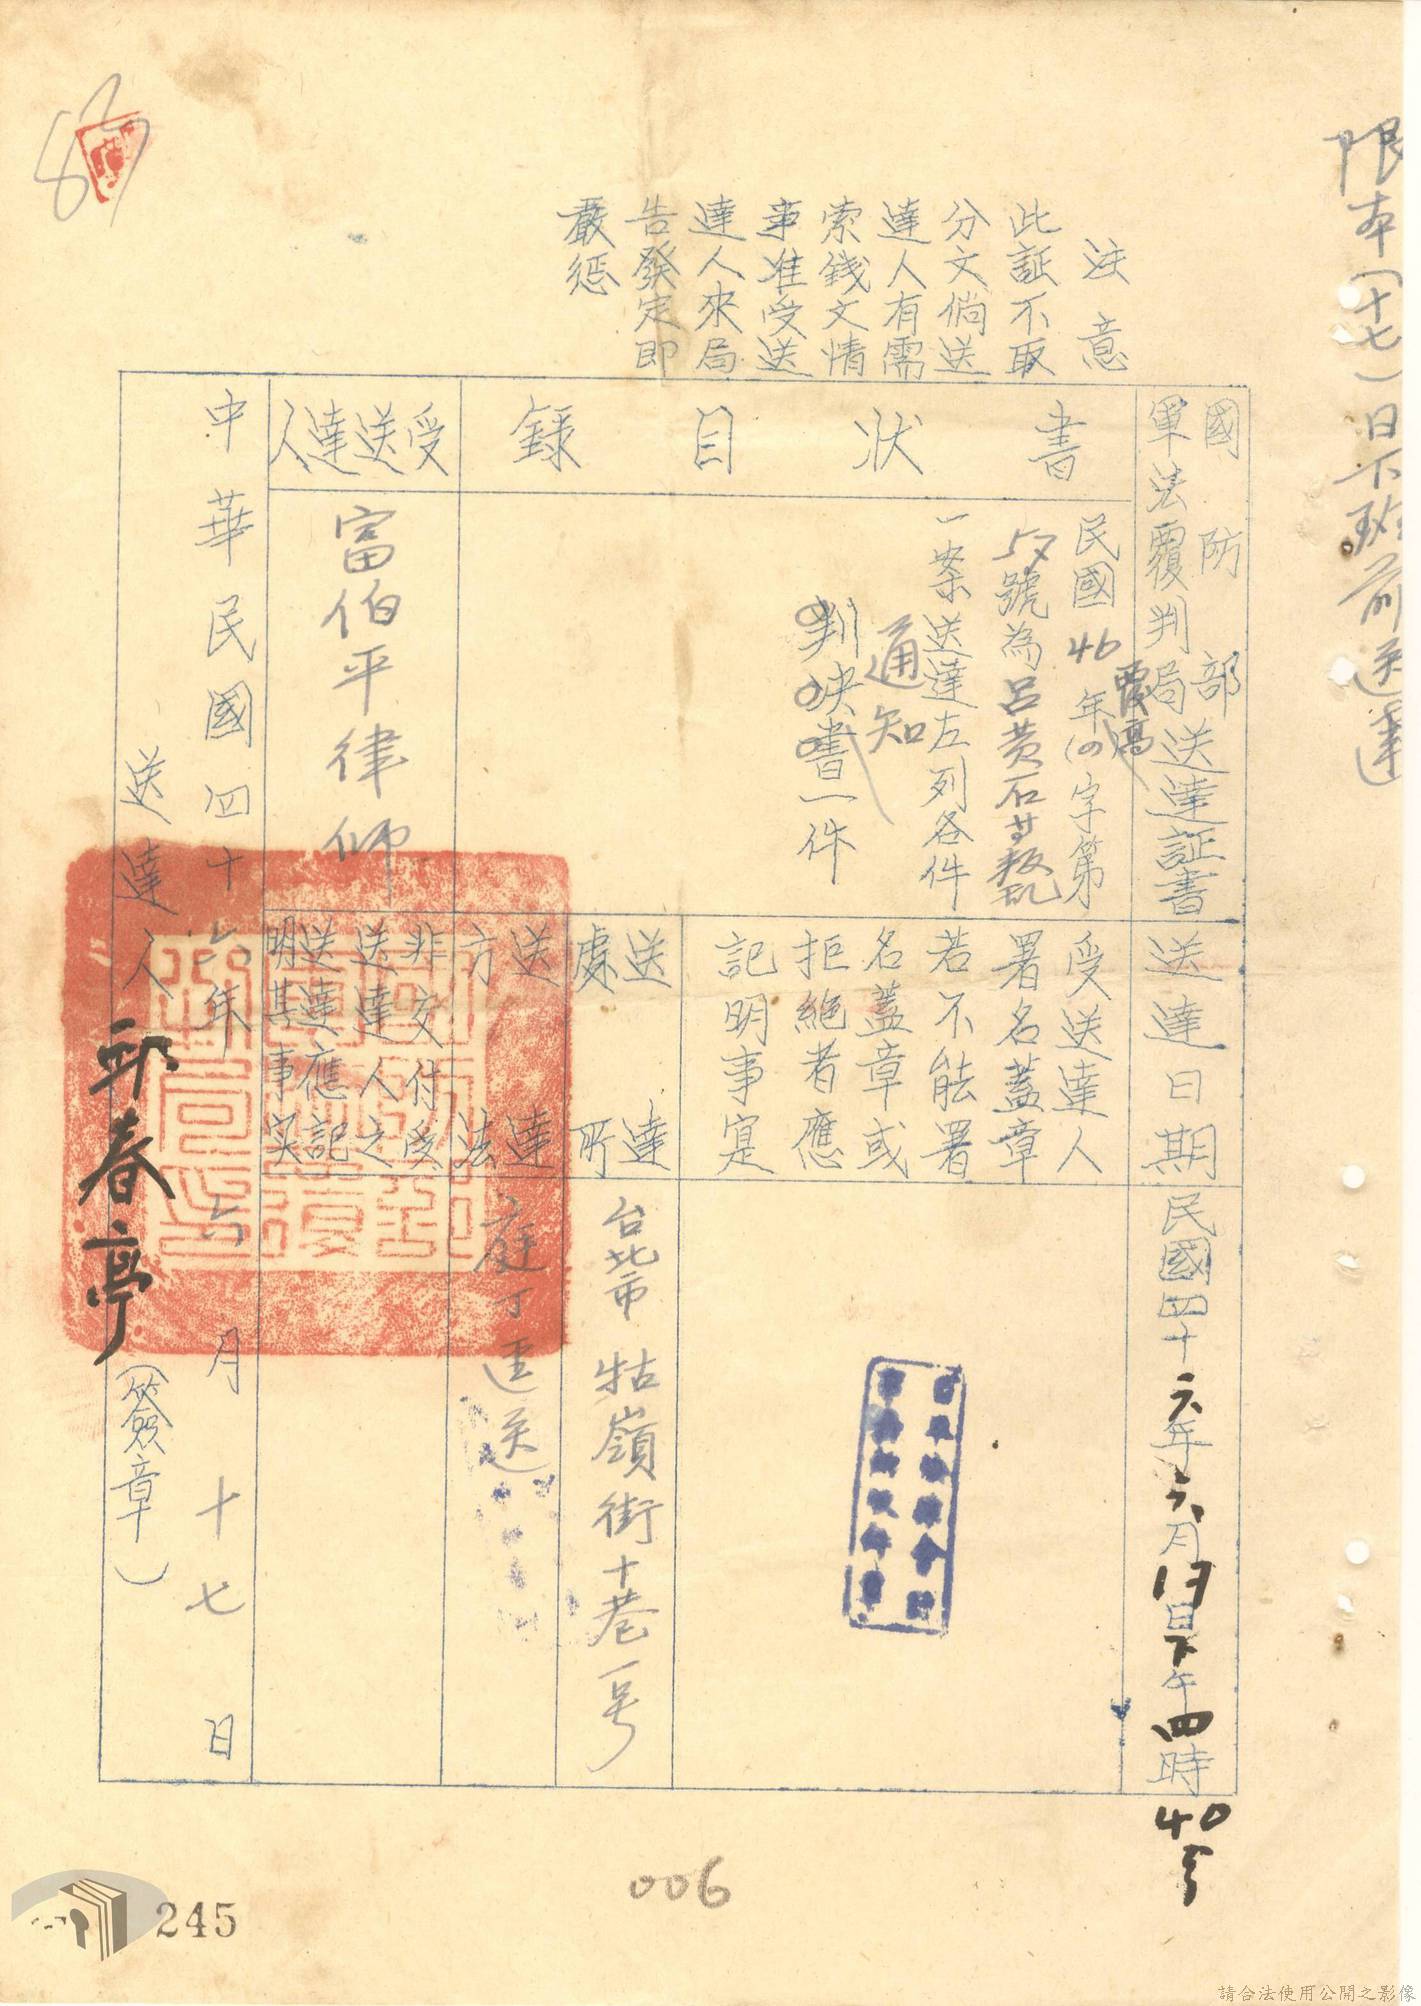 限本(十七)日下班前送達
注意
此証不取
分文倘送
達人有需
索錢文情
事准受送
達人來局
告發定即
嚴懲
國防部
軍法覆判局送達証書
書狀目錄
民國46年(0覆高)字第
57號為呂黃石等叛亂
一案送達左列各件
通知
判決書一件
受送達人
富伯平律師
送達日期
民國四十六年六月17日下午四時
40分
受送達人
署名蓋章
若不能署
名蓋章或
拒絕者應
記明事寔
送達處所
台北市牯嶺街十巷一号
送達方法
庭丁逕送
非交付受
送達人之
送達應記
明其事実
中華民國四十六年六月十七日
送達人 邱春亭 (簽章)
87
006
245
請合法使用公開之影像